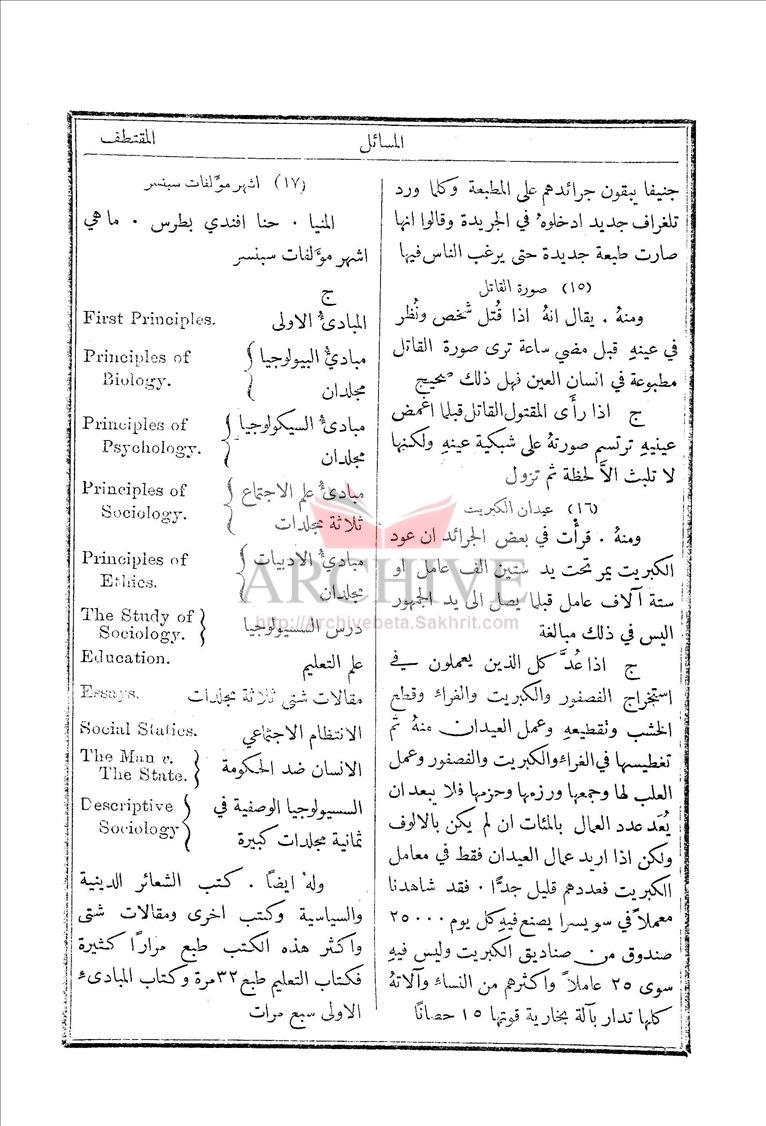 المسائل
المقتطف
جنيفا يبقون جرائدهم على المطبعة وكلما ورد
تلغراف جديد ادخلوهُ في الجريدة وقالوا انها
صارت طبعة جديدة حتى يرغب الناس فيها
(١٥) صورة القاتل
ومنهُ . يقال انهُ اذا قُتل شخص ونُظر
في عينهِ قبل مضي ساعة ترى صورة القاتل
مطبوعة في انسان العين فهل ذلك صحيح
ج اذا رأَى المقتول القاتل قبلما اغمض
عينيهِ ترتسم صورتهُ على شبكية عينهِ ولكنها
لا تلبث الاَّ لحظة ثم تزول
(١٦) عيدان الكبريت
ومنهُ . قرأْت في بعض الجرائد ان عود
الكبريت يمر تحت يد ستين الف عامل او
ستة آلاف عامل قبلما يصل الى يد الجمهور
اليس في ذلك مبالغة
ج اذا عُدَّ كل الذين يعملون في
استخراج الفصفور والكبريت والغراء وقطع
الخشب وتقطيعهِ وعمل العيدان منهُ ثم
تغطيسها في الغراء والكبريت والفصفور وعمل
العلب لها وجمعها ورزمها وحزمها فلا يبعد ان
يُعَد عدد العمال بالمئات ان لم يكن بالالوف
ولكن اذا اريد عمال العيدان فقط في معامل
الكبريت فعددهم قليل جدًّا . فقد شاهدنا
معملاً في سويسرا يصنع فيهِ كل يوم ٢٥٠٠٠
صندوق من صناديق الكبريت وليس فيهِ
سوى ٢٥ عاملاً واكثرهم من النساء وآلاتهُ
كلها تدار بآلة بخارية قوتها ١٥ حصانًا
(١٧) اشهر مؤَلفات سبنسر
المنيا . حنا افندي بطرس . ما هي
اشهر مؤَلفات سبنسر
ج
المبادئُ الاولى First Principles.
مبادئُ البيولوجيا Principles of
مجلدان Biology.
مبادئُ السيكولوجيا Principles of
مجلدان Psychology.
مبادئُ علم الاجتماع Principles of
ثلاثة مجلدات Sociology.
مبادئُ الادبيات Principles of
مجلدان Ethics.
درس السسيولوجيا The Study of
Sociology.
علم التعليم Education.
مقالات شتى ثلاثة مجلدات Essays.
الانتظام الاجتماعي Social Statics.
الانسان ضد الحكومة The Man v.
The State.
السسيولوجيا الوصفية في Descriptive
ثمانية مجلدات كبيرة Sociology
ولهُ ايضًا . كتب الشعائر الدينية
والسياسية وكتب اخرى ومقالات شتى
واكثر هذه الكتب طبع مرارًا كثيرة
فكتاب التعليم طبع ٣٢ مرة وكتاب المبادىء
الاولى سبع مرات
ARCHIVE
http://Archivebeta.Sakhrit.com